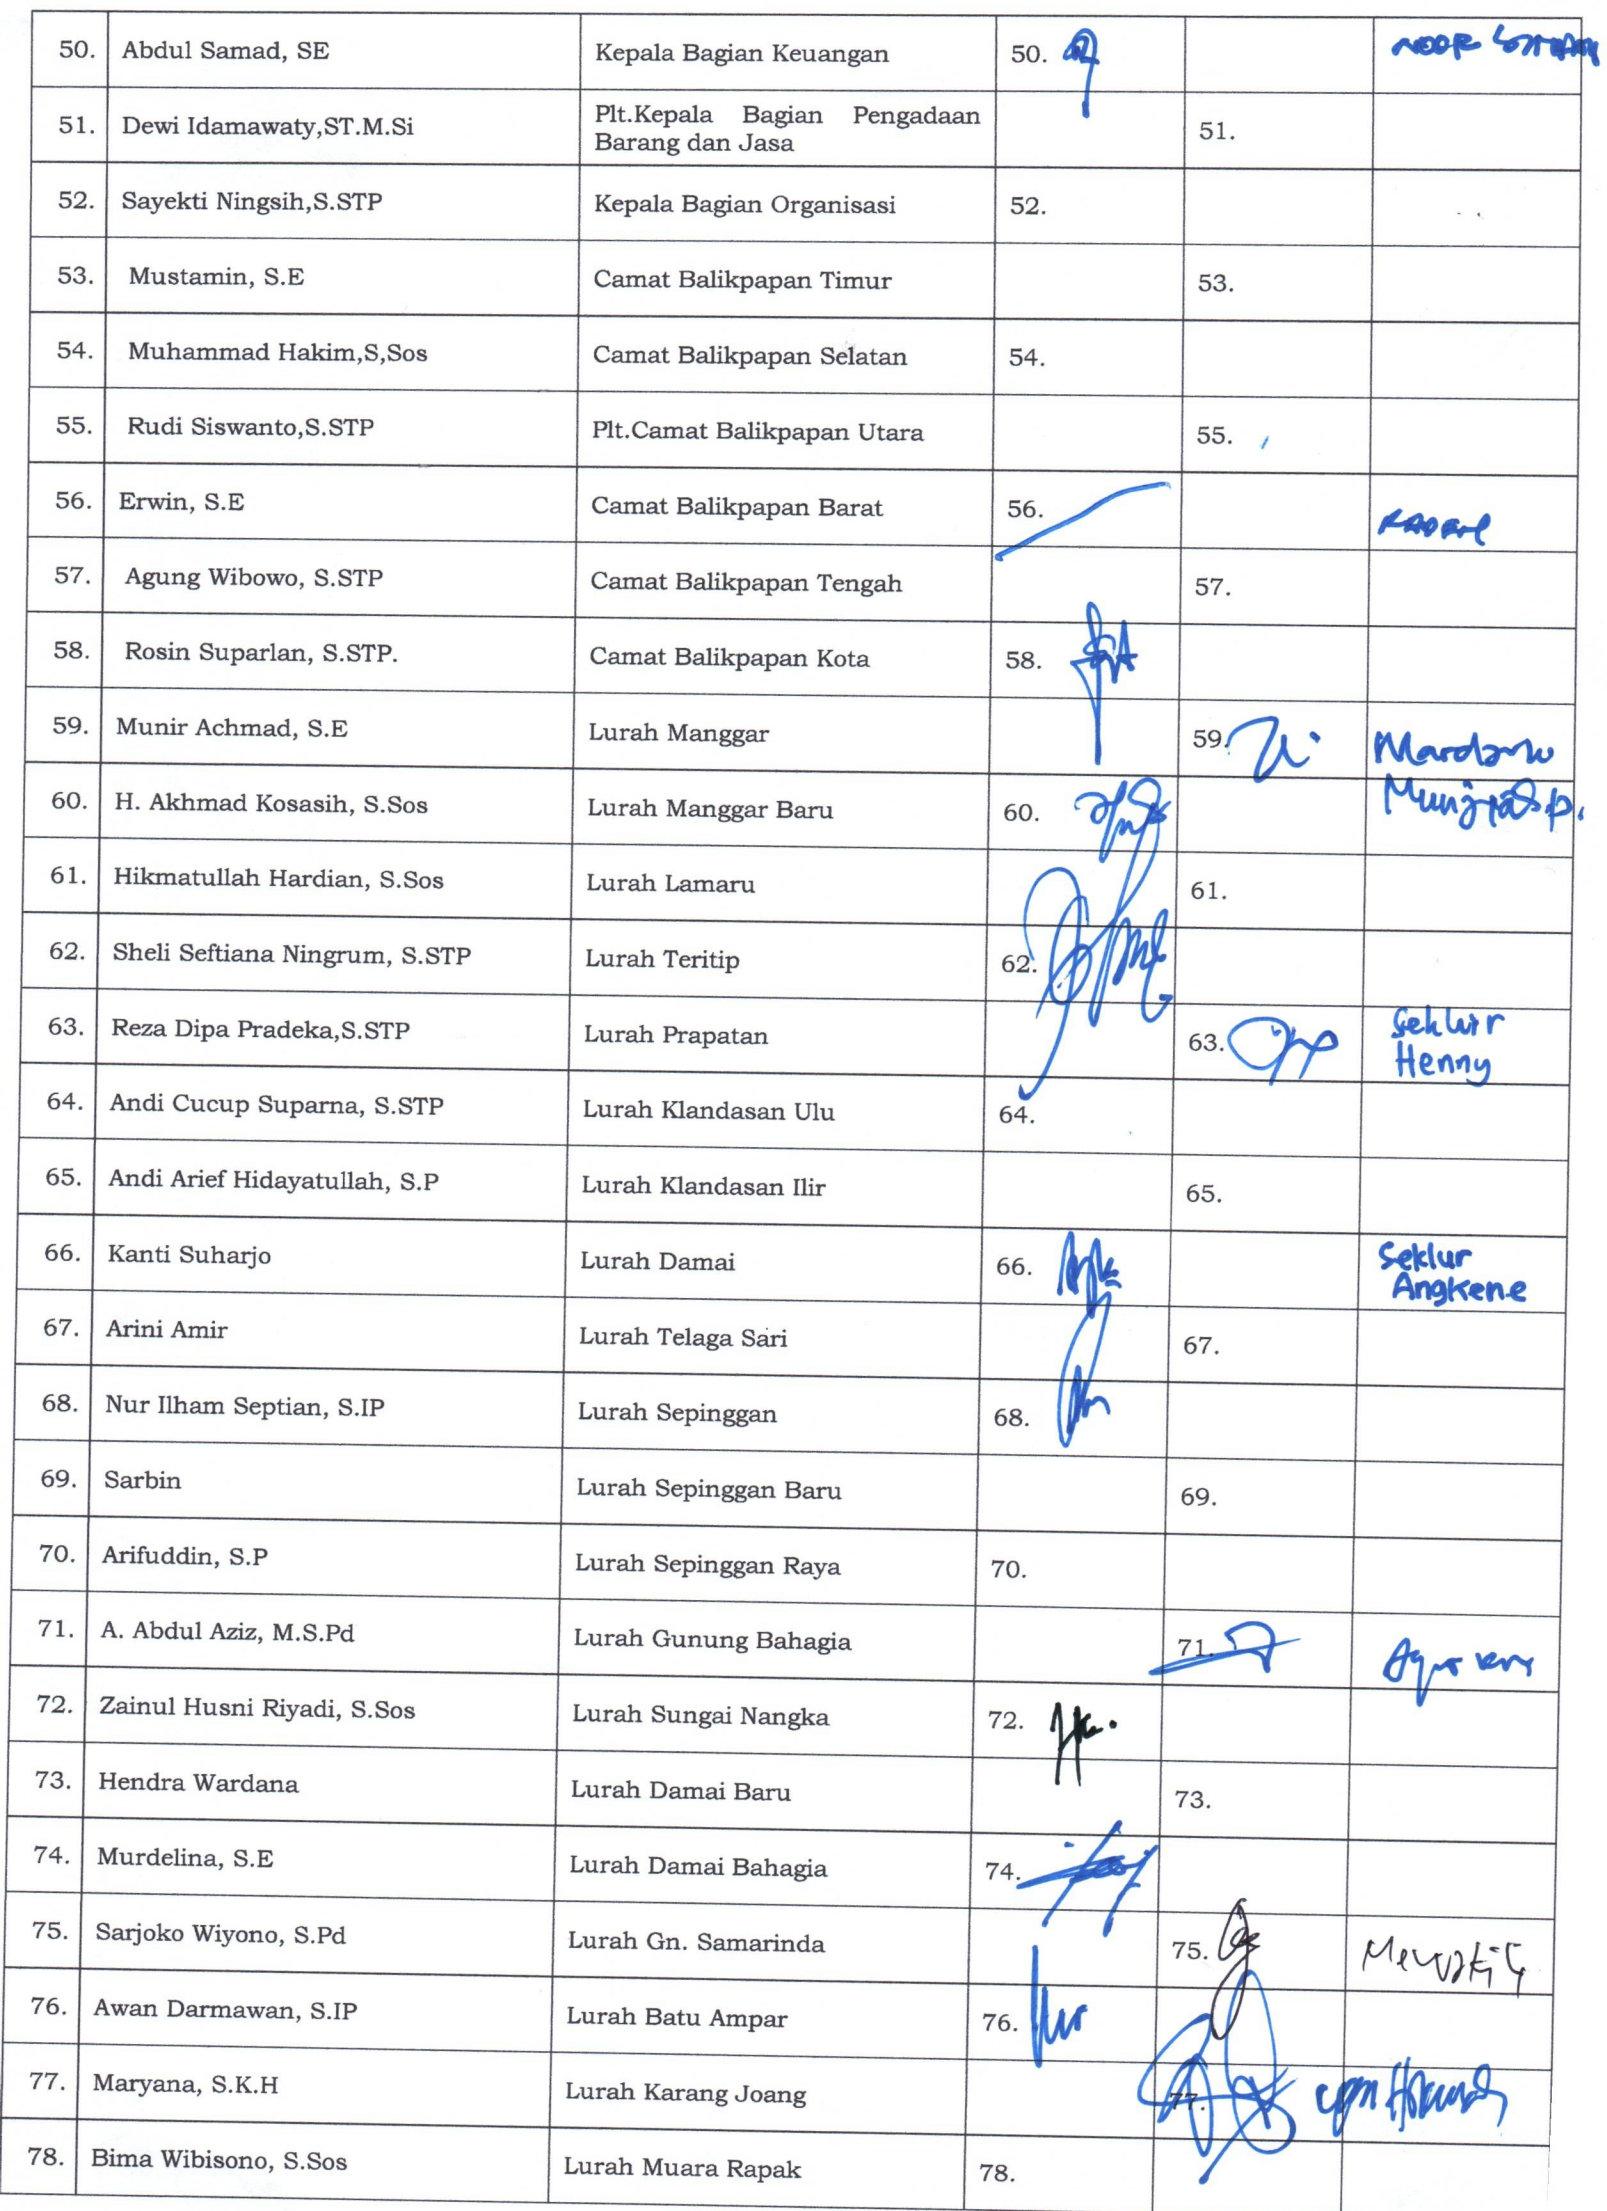 50. Abdul Samad, SE Kepala Bagian Keuangan 50.
51. Dewi Idamawaty,ST.M.Si Plt.Kepala Bagian Pengadaan
Barang dan Jasa 51.
52. Sayekti Ningsih,S.STP Kepala Bagian Organisasi 52.
53. Mustamin, S.E Camat Balikpapan Timur 53.
54. Muhammad Hakim,S,Sos Camat Balikpapan Selatan 54.
55. Rudi Siswanto,S.STP Plt.Camat Balikpapan Utara 55.
56. Erwin, S.E Camat Balikpapan Barat 56.
57. Agung Wibowo, S.STP Camat Balikpapan Tengah 57.
58. Rosin Suparlan, S.STP. Camat Balikpapan Kota 58.
59. Munir Achmad, S.E Lurah Manggar 59.
60. H. Akhmad Kosasih, S.Sos Lurah Manggar Baru 60.
61. Hikmatullah Hardian, S.Sos Lurah Lamaru 61.
62. Sheli Seftiana Ningrum, S.STP Lurah Teritip 62.
63. Reza Dipa Pradeka,S.STP Lurah Prapatan 63.
Henny
64. Andi Cucup Suparna, S.STP Lurah Klandasan Ulu 64.
65. Andi Arief Hidayatullah, S.P Lurah Klandasan Ilir 65.
66. Kanti Suharjo Lurah Damai 66. Seklur
Angkene
67. Arini Amir Lurah Telaga Sari 67.
68. Nur Ilham Septian, S.IP Lurah Sepinggan 68.
69. Sarbin Lurah Sepinggan Baru 69.
70. Arifuddin, S.P Lurah Sepinggan Raya 70.
71. A. Abdul Aziz, M.S.Pd Lurah Gunung Bahagia 71.
72. Zainul Husni Riyadi, S.Sos Lurah Sungai Nangka 72.
73. Hendra Wardana Lurah Damai Baru 73.
74. Murdelina, S.E Lurah Damai Bahagia 74.
75. Sarjoko Wiyono, S.Pd Lurah Gn. Samarinda 75. Mewakili
76. Awan Darmawan, S.IP Lurah Batu Ampar 76.
77. Maryana, S.K.H Lurah Karang Joang 77.
78. Bima Wibisono, S.Sos Lurah Muara Rapak 78.